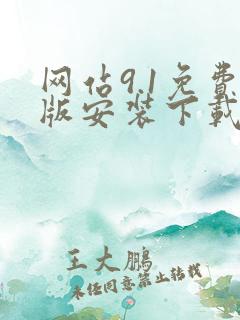 网佔9.1免费
版安装下载
王大鹏
未经同意禁止转载